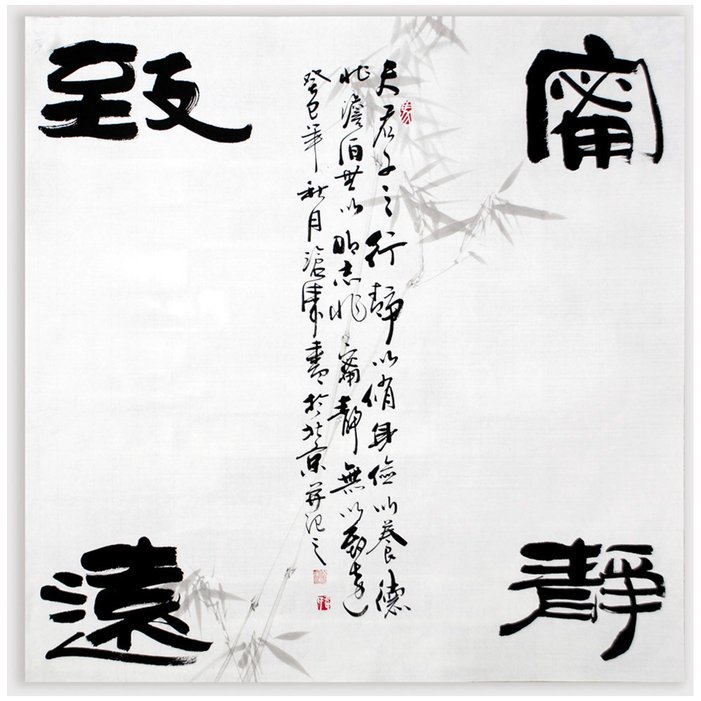 甯靜
致遠
夫君子之行靜以脩身儉以養德
非澹泊無以明志非甯靜無以致遠
癸巳年秋月滄書於北京并記之